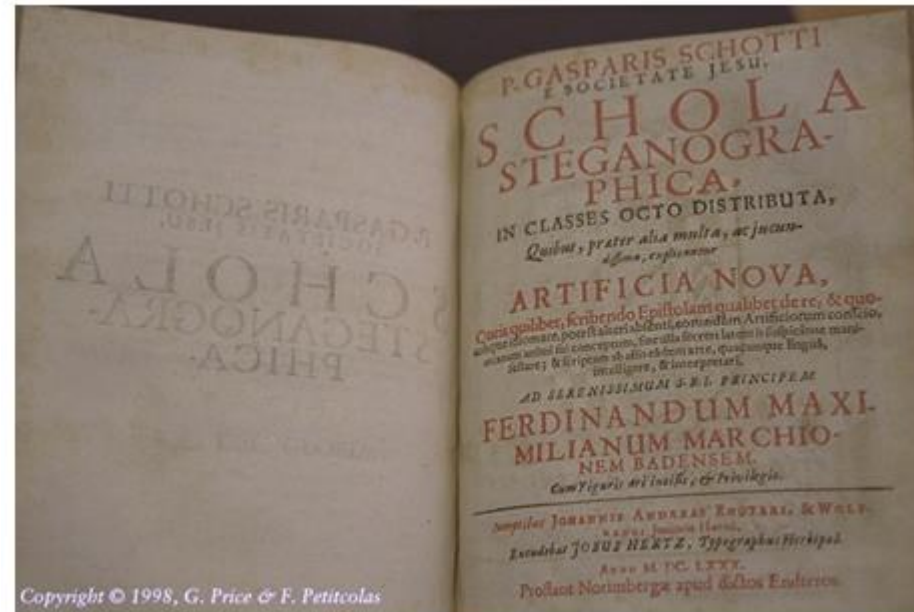 P. GASPARIS SCHOTTI
E SOCIETATE JESU,
SCHOLA
STEGANOGRA-
PHICA,
IN CLASSES OCTO DISTRIBUTA,
Quibus, præter alia multa, ac jucun-
dissima, explicantur
ARTIFICIA NOVA,
Queis quilibet, scribendo Epistolam qualibet de re, & quo-
cunque idiomate, potest alteri absenti, eorundem Artificiorum conscio,
arcanum animi sui conceptum, sine ulla secreti latentis suspicione mani-
festare; & scriptam ab aliis eâdem arte, quacunque linguâ,
intelligere, & interpretari.
AD SERENISSIMUM S.R.I. PRINCIPEM
FERDINANDUM MAXI-
MILIANUM MARCHIO-
NEM BADENSEM.
Cum Figuris æri incisis, & Privilegio.
Sumptibus JOHANNIS ANDREÆ ENDTERI, & WOLF-
Excudebat JOBUS HERTZ, Typographus Herbipol.
Anno M. DC. LXXX.
Prostant Norimbergæ apud dictos Endteros.
P. GASPARIS SCHOTTI
SOCIETATE JESU,
SCHOLA
STEGANOGRA-
PHICA.
Copyright © 1998, G. Price & F. Petitcolas